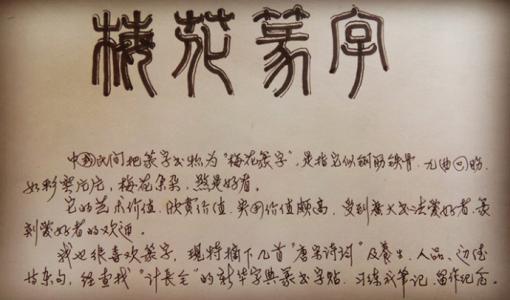 梅花篆字
中国民间把篆字书称为“梅花篆字”，是指它似钢筋铁骨 九曲回肠
如彩云片片，梅花朵朵，煞是好看。
它的艺术价值、欣赏价值、实用价值颇高，受到广大书法爱好者、篆
刻爱好者的欢迎。
我也很喜欢篆字，现特摘下几首“唐宋诗词”及养生、人品、道德
杂句，经查找“计长全”的新华字典篆书字帖，习练成笔记，留作纪念。